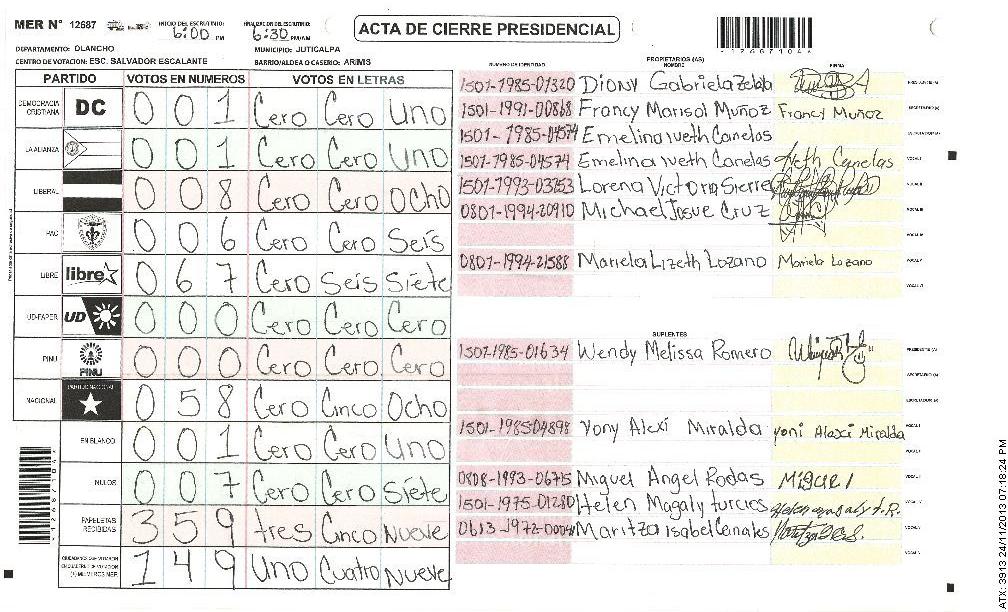 MER N° 12687
INICIO DEL ESCRUTINIO: 6:00 PM
FINALIZACION DEL ESCRUTINIO: 6:30 PM/AM
ACTA DE CIERRE PRESIDENCIAL
-12667104-
DEPARTAMENTO: OLANCHO
MUNICIPIO: JUTICALPA
CENTRO DE VOTACION: ESC. SALVADOR ESCALANTE
BARRIO/ALDEA O CASERIO: ARIMS
PARTIDO VOTOS EN NUMEROS VOTOS EN LETRAS
DEMOCRACIA CRISTIANA DC 0 0 1 Cero Cero Uno
LA ALIANZA 0 0 1 Cero Cero Uno
LIBERAL 0 0 8 Cero Cero Ocho
PAC 0 0 6 Cero Cero Seis
LIBRE libre 0 6 7 Cero Seis Siete
UD-FAPER UD 0 0 0 Cero Cero Cero
PINU PINU 0 0 0 Cero Cero Cero
NACIONAL PARTIDO NACIONAL 0 5 8 Cero Cinco Ocho
EN BLANCO 0 0 1 Cero Cero Uno
NULOS 0 0 7 Cero Cero Siete
PAPELETAS RECIBIDAS 3 5 9 tres Cinco Nueve
1 4 9 Uno Cuatro Nueve
NUMERO DE IDENTIDAD PROPIETARIOS (AS) NOMBRE FIRMA
1501-1985-01320 Diony Gabriela Zelda
1501-1991-00868 Francy Marisol Muñoz Francy Muñoz
1501-1985-04574 Emelina iveth Canelas
1501-1985-04574 Emelina iveth Canelas iveth Canelas VOCAL I
1501-1993-03753 Lorena Victoria Sierra VOCAL II
0801-1994-20910 Michael Josue Cruz VOCAL III
VOCAL IV
0801-1994-21588 Mariela Lizeth Lozano Mariela Lozano VOCAL V
VOCAL VI
SUPLENTES
1501-1985-01634 Wendy Melissa Romero PRESIDENTE (A)
SECRETARIO (A)
ESCRUTADOR (A)
1501-1985-04898 Yony Alexi Miralda yoni Alexi Miralda VOCAL I
0808-1993-06715 Miguel Angel Rodas Miguel
1501-1975-01280 Helen Magaly turcios
0613-1972-00041 Maritza isabel Canales
ATX: 3913 24/11/2013 07:18:24 PM